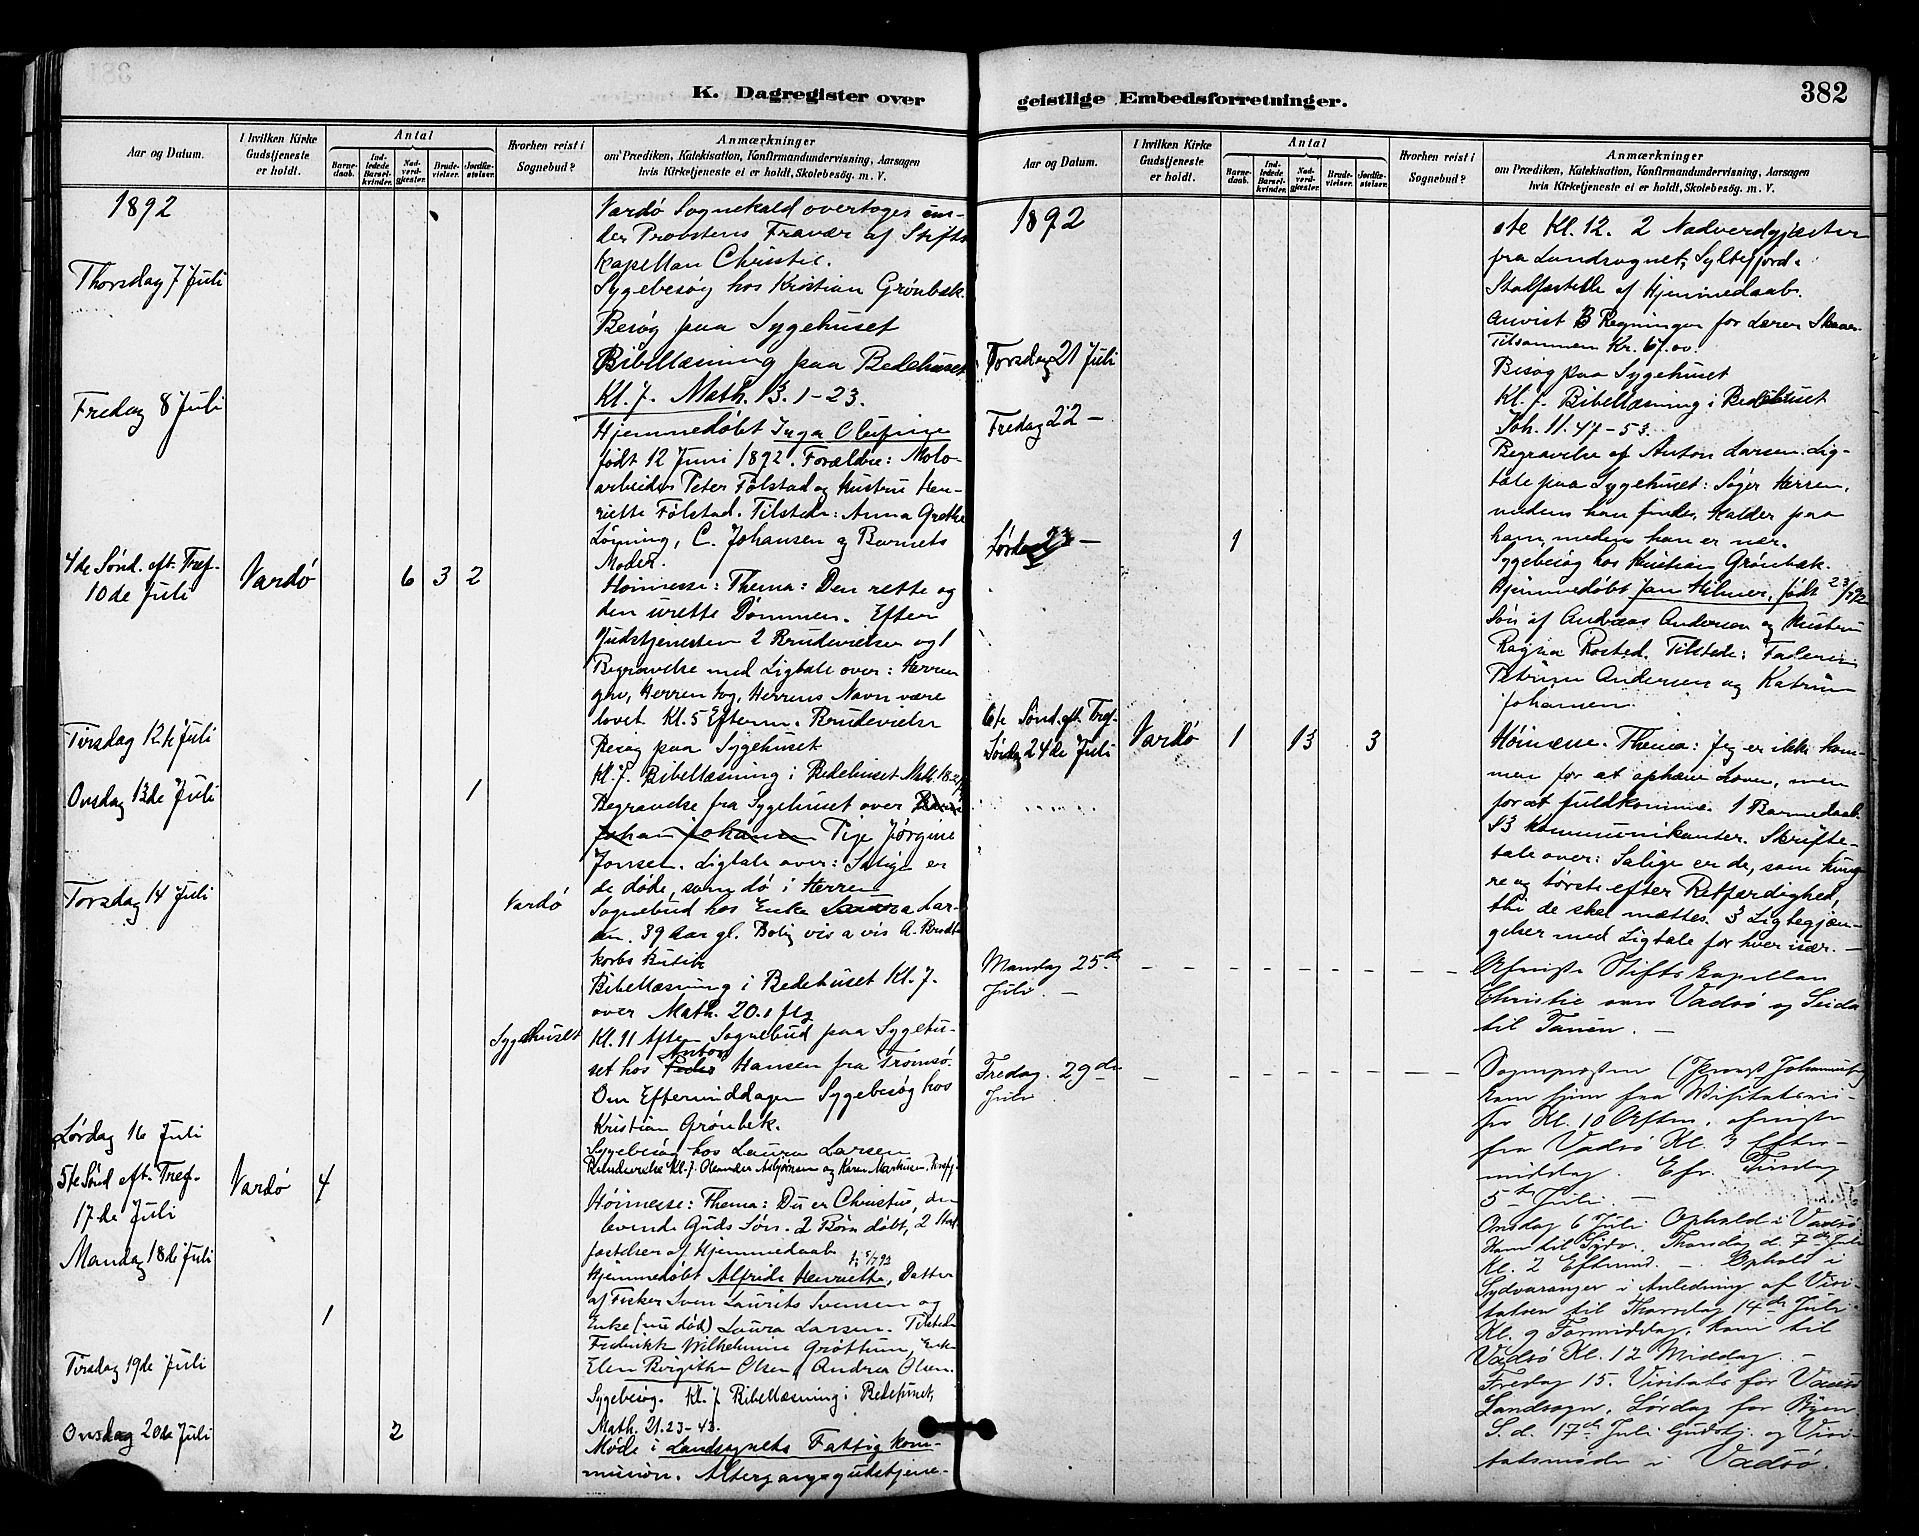 K. Dagregister over
Aar og Datum.
I hvilken Kirke
Gudstjeneste
er holdt.
Antal
Barne-
daab.
Ind-
ledede
Barsel-
kvinder.
Nad-
verd-
gjæster.
Brude-
vielser.
Jordfæ-
stelser.
Hvorhen reist i
Sognebud?
Anmærkninger
om Prædiken, Katekisation, Konfirmandundervisning, Aarsagen
hvis Kirketjeneste ei er holdt, Skolebesøg. m. V.
1892
Vardø Sognekald overtoges un-
der Provstens Fravær af Stifts
kapellan Christie.
Thorsdag 7 Juli
Sygebesøg hos Kristian Grønbæk.
Besøg paa Sygehuset
Bibellæsning paa Bedehuset
Kl. 7. Math. 13. 1-23.
Fredag 8 Juli
Hjemmedøbt Inga Olufine
født 12 Juni 1892. Forældre: Molo-
arbeider Peter Følstad og Hustru Hen-
riette Følstad. Tilstede: Anna Grethe
Løsning, C. Johansen og Barnets
Moder.
4de Sønd. eft. Tref.
10de Juli
Vardø
6
3
2
Høimesse: Thema: Den rette og
den urette Dømmen. Efter
Gudstjenesten 2 Brudevielser og 1
Begravelse med Ligtale over: Herren
gav, Herren tog, Herrens Navn være
lovet. Kl. 5 Efterm. Brudevielse
Tirsdag 12te Juli
Besøg paa Sygehuset
Kl. 7. Bibellæsning i Bedehuset Math. 18.
Onsdag 13de Juli
1
Begravelse fra Sygehuset over
Johan Johansen Pige Jørgine
Jonsen. Ligtale over: Salige er
de døde, som dø i Herren
Torsdag 14 Juli
Vardø
Sognebud hos Enke Laura Lar-
sen. 39 Aar gl. Bolig vis a vis A. Brodt
korbs Butik
Bibellæsning i Bedehuset Kl. 7.
over Math. 20. 1 flg
Sygehuset
Kl. 11 Aften Sognebud paa Sygehu-
Anton
set hos Peder Hansen fra Tromsø.
Om Eftermiddagen Sygebesøg hos
Kristian Grønbek.
Lørdag 16 Juli
Sygebesøg hos Laura Larsen
Brudevielse Kl. 7. Oleander Asbjørnsen og Karen Markusen.
5te Sønd eft. Tref.
17de Juli
Vardø
4
Høimesse: Thema: Du er Christus, den
levende Guds Søn. 2 Børn døbt, 2 Stad-
fæstelser af Hjemmedaab.
Mandag 18de Juli
f. 5/7 92
Hjemmedøbt Alfride Henriette, Datter
af Fisker Sven Laurits Svensen og
1
Enke (nu død) Laura Larsen. Tilstede
Fredrikke Wilhelmine Grøttum, Enke
Elen Birgithe Olsen, Andrea Olsen.
Tirsdag 19de Juli
Sygebesøg. Kl. 7 Bibellæsning i Bedehuset,
Math. 21. 23-43.
Onsdag 20de Juli
2
Møde i Landsognets Fattigkom-
mision. Altergangsgudstjene-
geistlige Embedsforretninger.
382
Aar og Datum.
I hvilken Kirke
Gudstjeneste
er holdt.
Antal
Barne-
daab.
Ind-
ledede
Barsel-
kvinder.
Nad-
verd-
gjæster.
Brude-
vielser.
Jordfæ-
stelser.
Hvorhen reist i
Sognebud?
Anmærkninger
om Prædiken, Katekisation, Konfirmandundervisning, Aarsagen
hvis Kirketjeneste ei er holdt, Skolebesøg. m. V.
1892
ste Kl. 12. 2 Nadverdgjæster
fra Landsognet, Syltefjord.
Stadfæstelse af Hjemmedaab.
Anvist 3 Regninger for Lærer
Tilsammen Kr. 67.00.
Torsdag 21 Juli
Besøg paa Sygehuset
Kl. 7. Bibellæsning i Bedehuset
Joh. 11. 47-53.
Fredag 22 -
Begravelse af Anton Larsen. Lig-
tale paa Sygehuset: Søger Herren,
medens han findes, Kalder paa
ham, medens han er nær.
Lørdag 23 -
1
Sygebesøg hos Kristian Grønbæk.
Hjemmedøbt Jan Hilmer, født 23/7 92
Søn af Andreas Andersen og Hustru
Ragna Rosted. Tilstede: Faderen
Petrine Andersen og Katrine
Johansen.
6te Sønd. eft. Tref.
Søndag 24de Juli
Vardø
1
13
3
Høimesse. Thema: Jeg er ikke kom-
men for at ophæve Loven, men
for at fuldkomme. 1 Barnedaab.
13 Kommunikanter. Skrifte-
tale over: Salige er de, som hung-
re og tørste efter Retfærdighed,
thi de skal mættes. 3 Ligbegjæn-
gelser med Ligtale for hver især. -
Mandag 25de
Juli. -
Afreiste Stifts Kapellan
Christie over Vadsø og Seida
til Tanen. -
Fredag. 29de
Juli
Sognepræsten (Provst Johannesen)
kom hjem fra Visitatsrei-
se Kl. 10 Aften, afreiste
fra Vadsø Kl. 3 Efter-
middag. Cfr. Tirsdag
5te Juli. -
Onsdag 6 Juli Ophold i Vadsø
Kom til Sydv. Thorsdag d. 7de Juli
Kl. 2 Efterm. -. Ophold i
Sydvaranger i Anledning af Visi-
tatsen til Thorsdag 14de Juli
Kl. 9 Formiddag, kom til
Vadsø Kl. 12 Middag. -
Fredag 15. Visitats for Vadsø
Landsogn, Lørdag for Byen
S. d. 17de Juli Gudstj. og Visi-
tatsmøde i Vadsø.